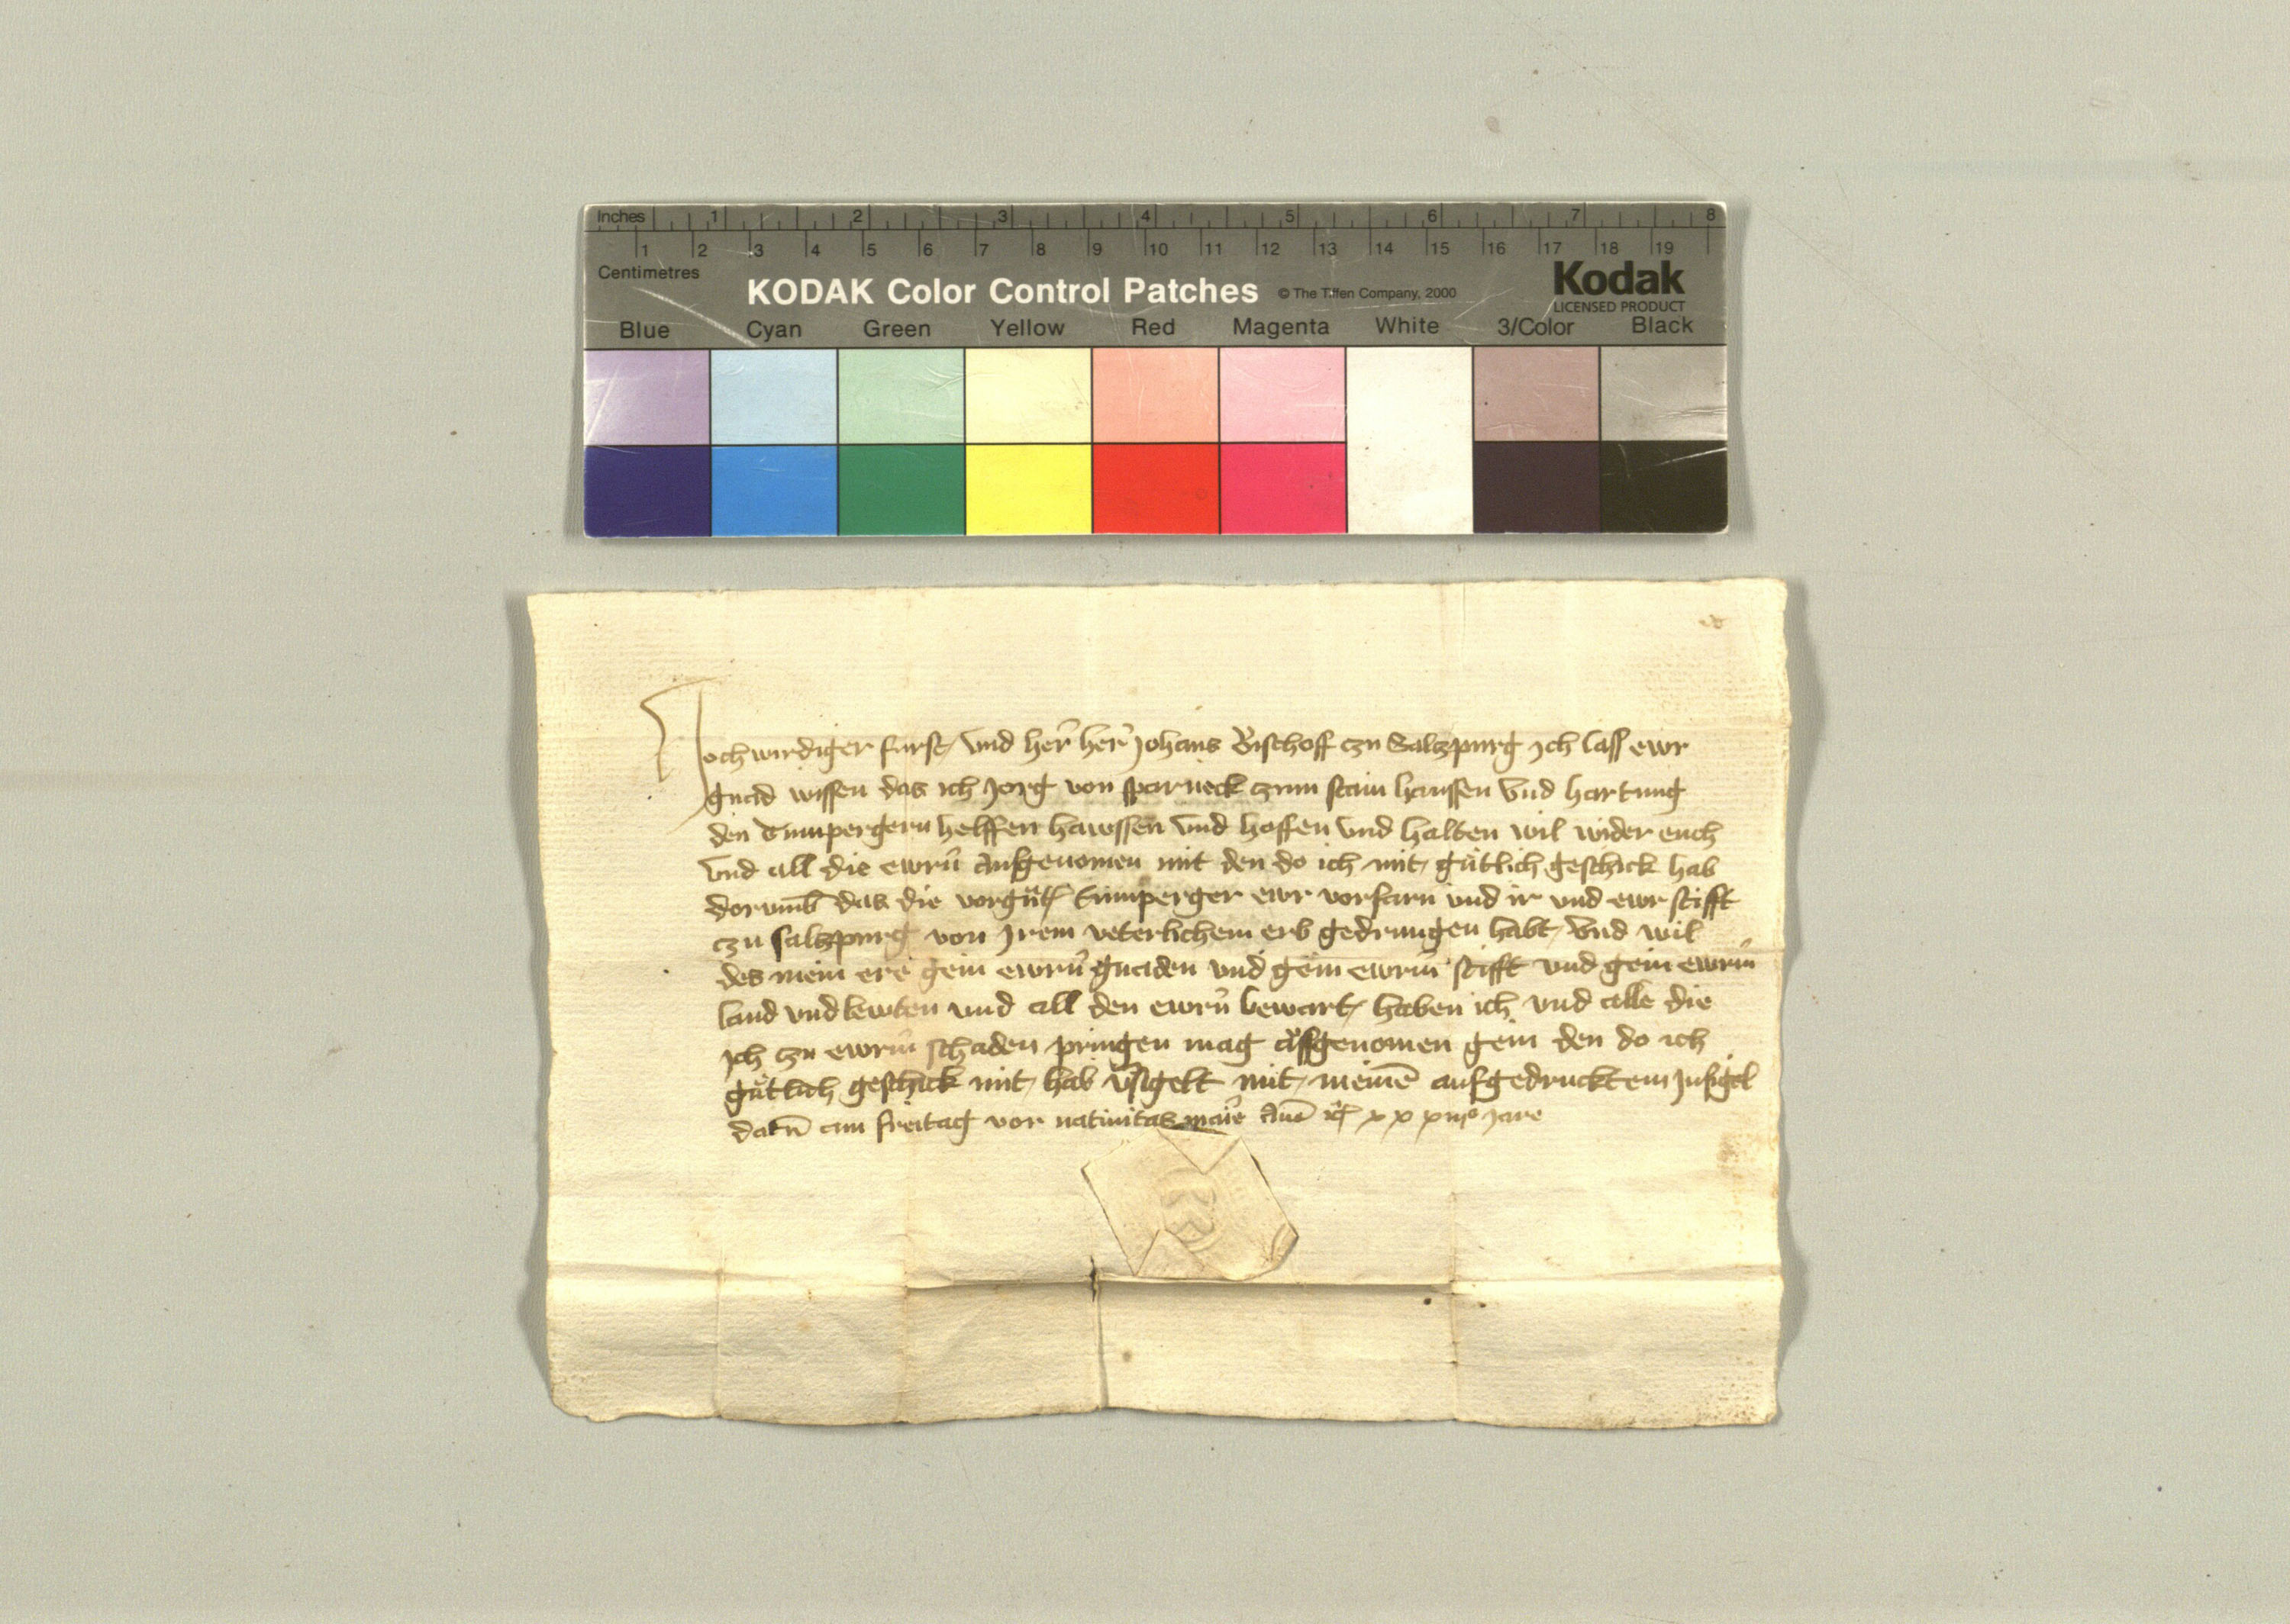 Inches 1 2 3 4 5 6 7 8
1 2 3 4 5 6 7 8 9 10 11 12 13 14 15 16 17 18 19
Centimetres
KODAK Color Control Patches © The Tiffen Company, 2000 Kodak
LICENSED PRODUCT
Blue Cyan Green Yellow Red Magenta White 3/Color Black
Hochwirdiger furst und her̄ her̄ Johans Bischoff czu Salczpurg Ich lass ewr
gnad wissen das ich Jorg von sparneck czum stain hanssen vnd hartung
den Trunpergern helffen hawssen vnd hoffen vnd halten wil wider euch
vnd all die ewrn̄ ausgenomen mit den do ich mit gutlich geschick hab
dorumb das die Trunperger ewr vorfarn vnd ir vnd ewr stifft
czu salczpurg von Irem veterlichem erb gedrungen habt vnd wil
des mein ere gein ewrn̄ gnaden vnd gein ewrm̄ stifft vnd gein ewrm̄
land vnd lewten vnd all den ewrn̄ bewart haben ich vnd alle die
ich czu ewrm̄ schaden pringen mag ausgenomen gein den do ich
gutlich geschick mit hab mit meinē aufgedrucktem Insigel
datū am freitag vor natiuitas marie jare